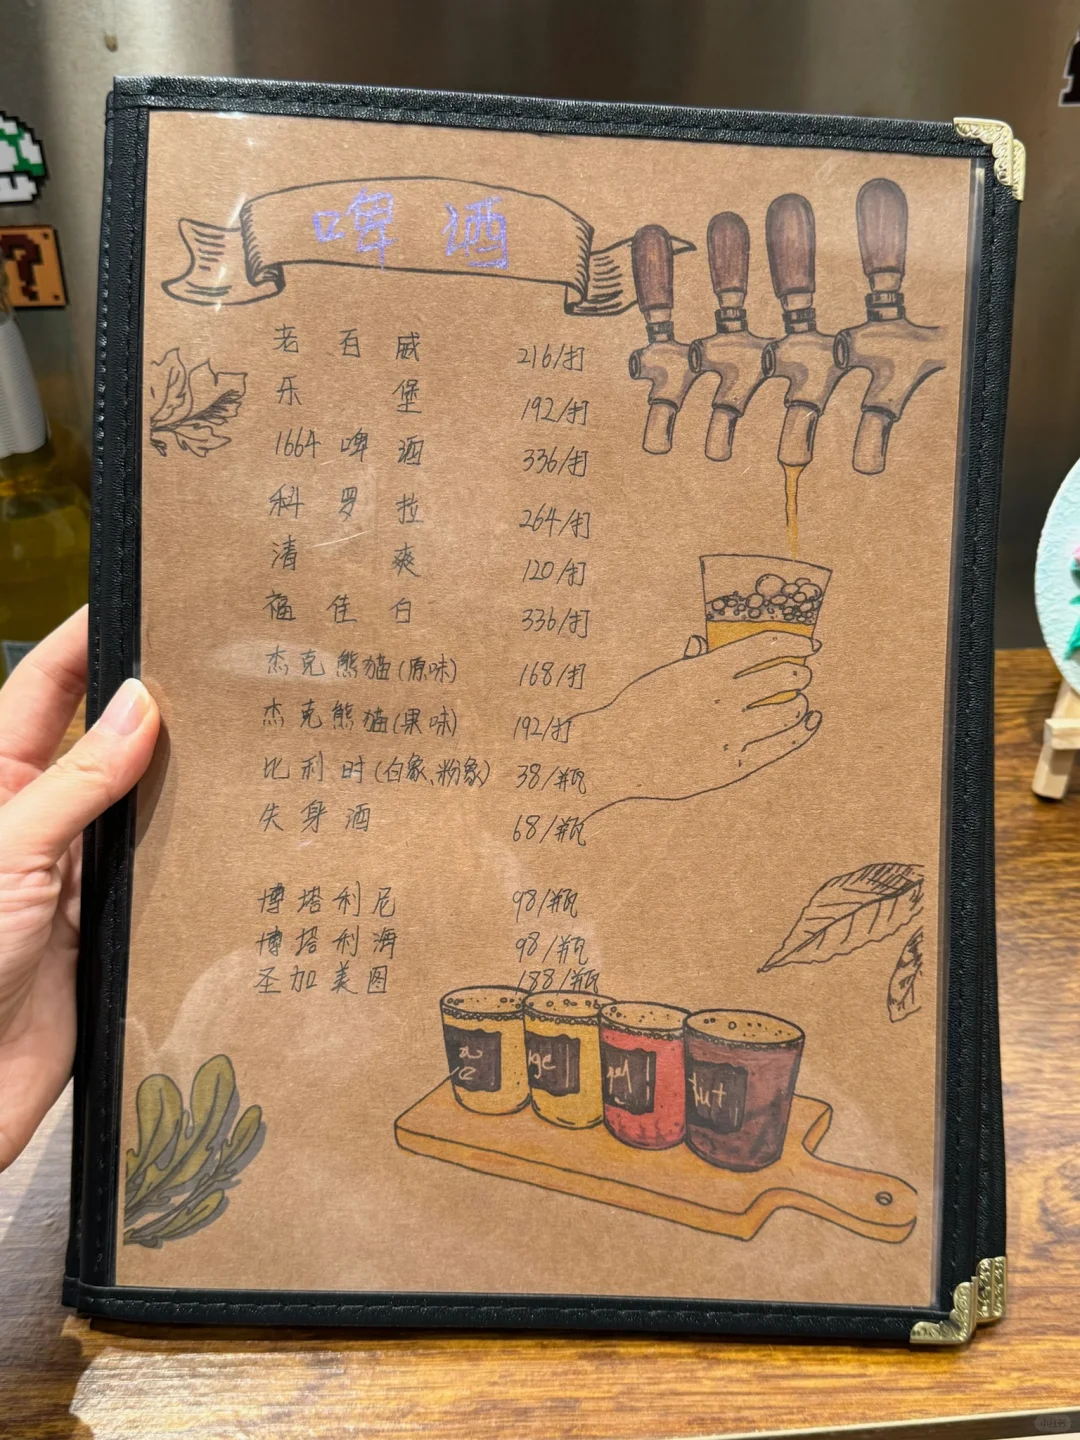 啤酒
老百威 216/打
乐堡 192/打
1664啤酒 336/打
科罗拉 264/打
清爽 120/打
福佳白 336/打
杰克熊猫(原味) 168/打
杰克熊猫(果味) 192/打
比利时(白象、粉象) 38/瓶
失身酒 68/瓶
博塔利尼 98/瓶
博塔利海 98/瓶
圣加美图 188/瓶